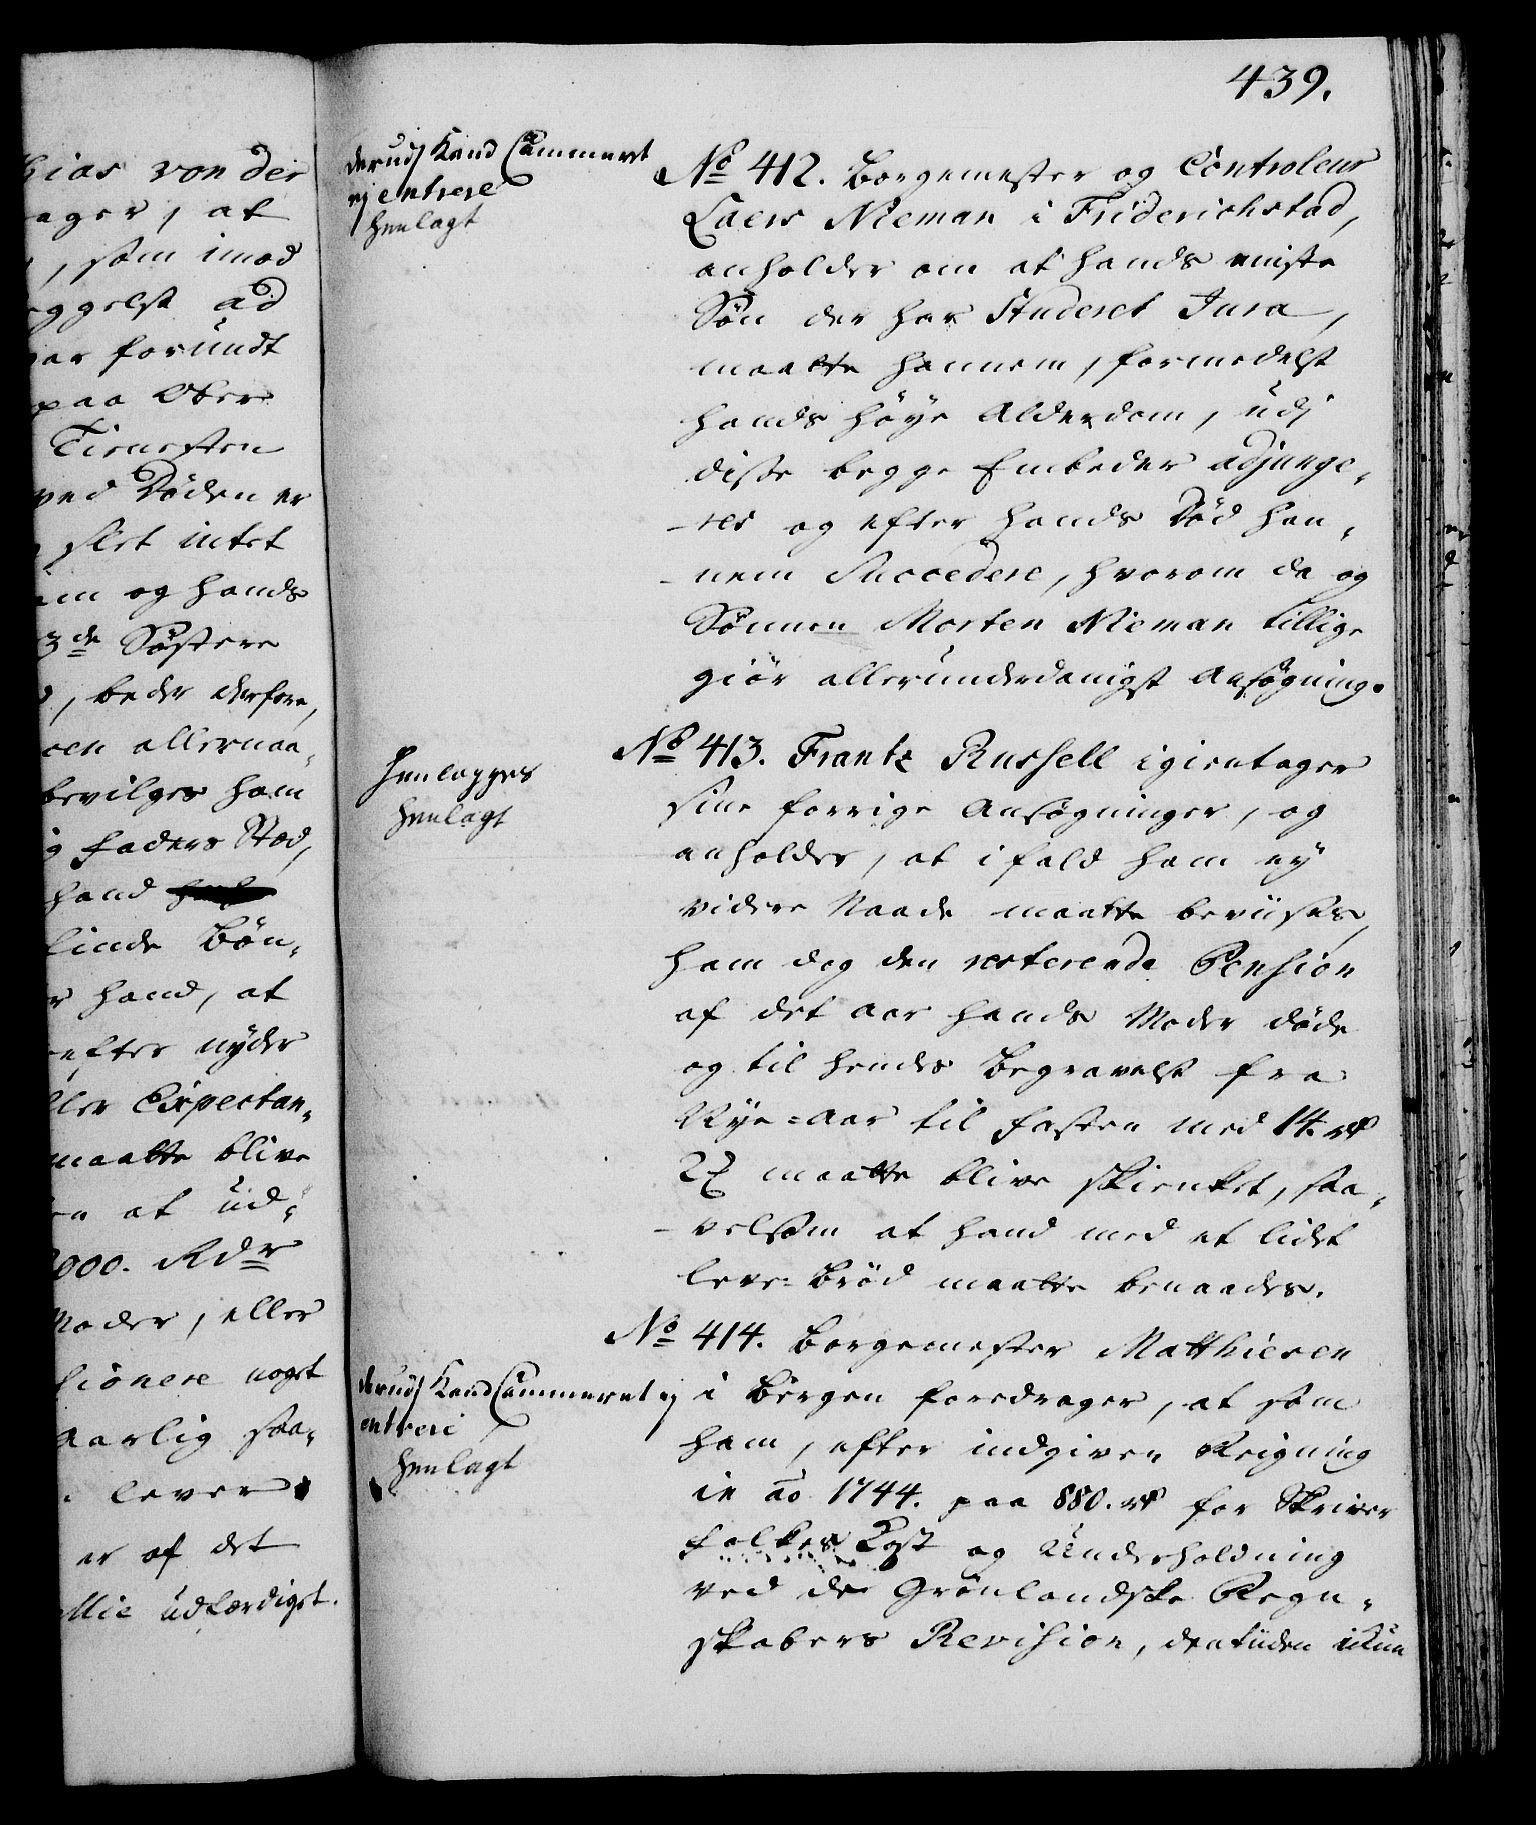 439.
hias von der
ager, at
, som imod
ggelse ad
har forundt
paa Ober
Tienesten
ved Døden er
slet intet
am og hands
3de Søstere
, beder derfore,
oen allernaa-
bevilges ham
g Faders Stæd,
hand
linde Bøn-
r hand, at
efter nyder
ller Expectan-
maatte blive
en at ud-
000. Rdr
Moder, eller
sionere noget
aarlig saa-
lever
er af det
llie udfærdiget.
Derudj Kand Cammeret
ej entrere
henlagt
No 412. Borgemester og Controleur
Laers Nieman i Friderichstad,
anholder om at hands eniste
Søn der har Studeret Jura,
maatte hannem, formedelst
hands høye Alderdom, udj
disse begge Embeder adjunge-
res og efter hands Død han-
nem Succedere, hvorom da og
Sønnen Morten Nieman tillige
giør allerunderdanigst Ansøgning.
Henlægges
henlagt
No 413. Frantz Russell igientager
sine forrige Ansøgninger, og
anholder, at ifald ham ey
videre Naade maatte beviises,
ham dog den resterende Pension
af det Aar hands Moder døde
og til hendes Begravelse fra
Nye-Aar til Fasten med 14. rd
2 maatte blive skienket, saa-
velsom at hand med et lidet
leve-Brød maatte benaades.
Derudj Kand Cammeret ej
entrere
henlagt
No 414. Borgemester Matthiesen
i Bergen foredrager, at som
ham, efter indgiven Reigning
in ao 1744. paa 880. rd for Skriver
folkes Kost og Underholdning
ved de Grønlandske Regn-
skabers Revision, dentiiden ikun